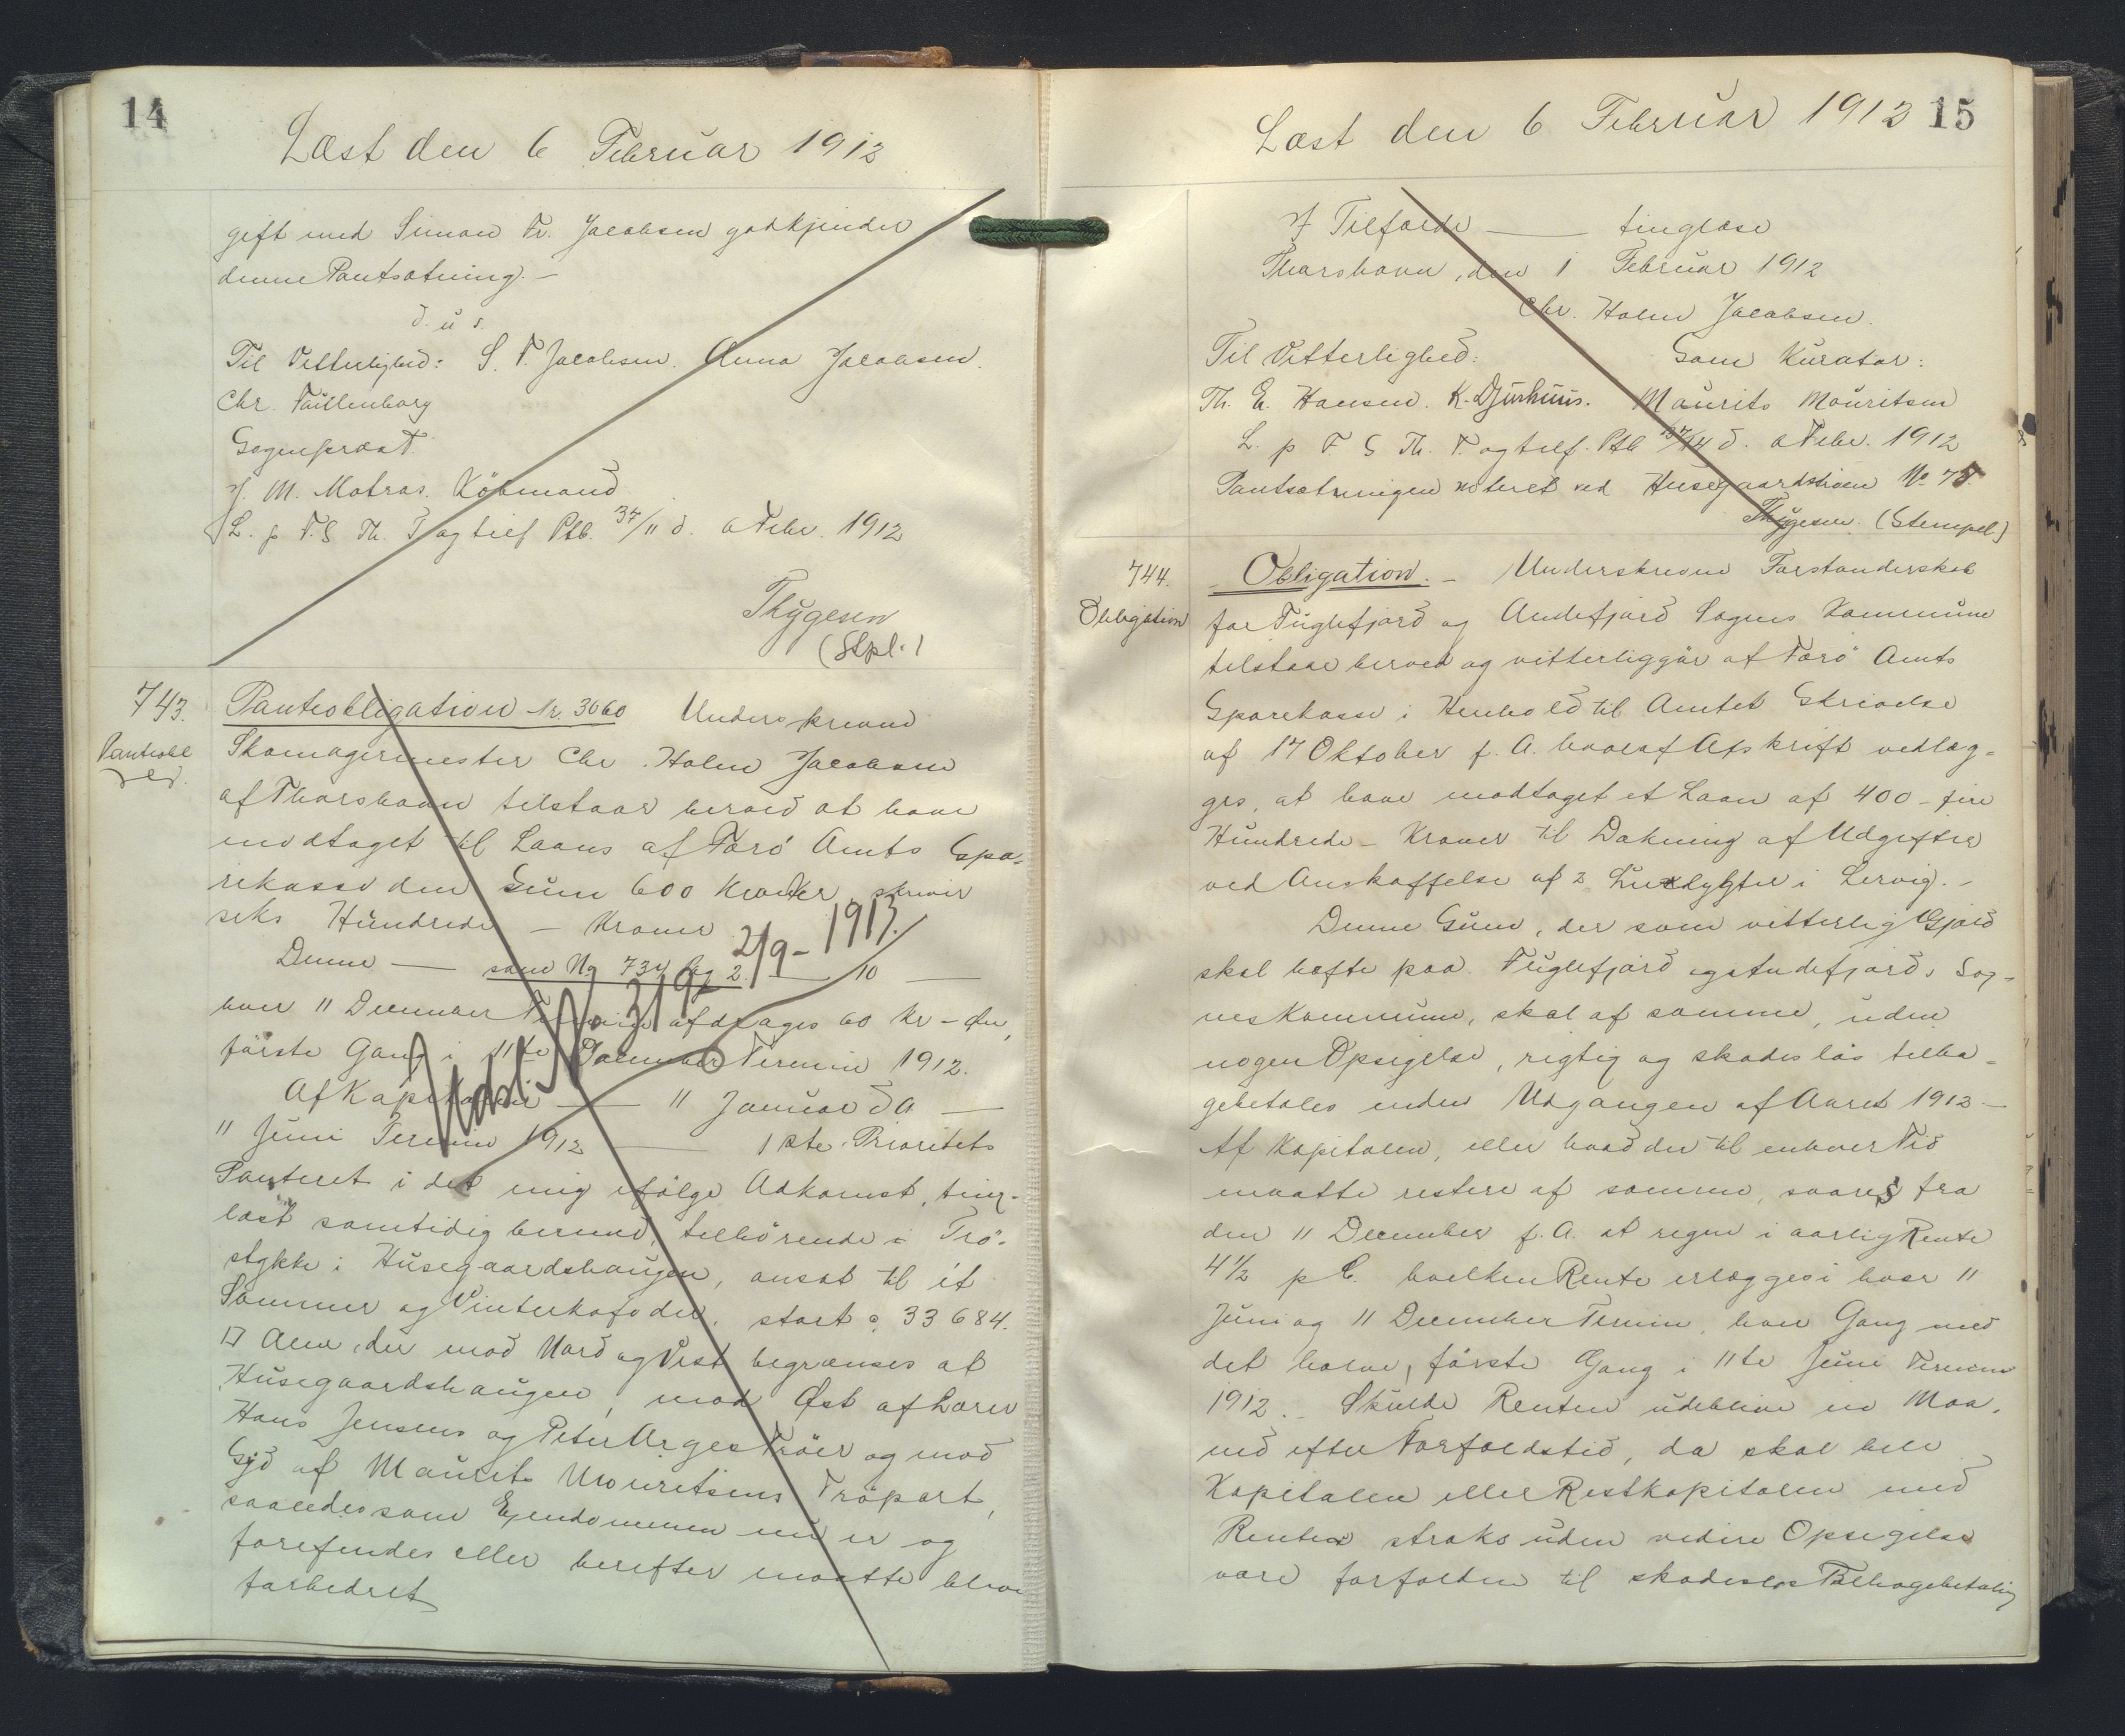 14
Læst den 6 Februar 1912
gift med Simon Fr. Jacobsen godkjender
denne Pantsætning. –
d. u s.
Til Vitterlighed: S. F. Jacobsen. Anna Jacobsen.
Chr.
Sognepræst
J. M. Matras. Købmand
L. p F. S Th. T og tilf Ptb. 37/11 d. 6 Febr. 1912
Thygesen
(Stpl.)
743.
Pantobl
Panteobligation Nr. 3060 Underskrevne
Skomagermester Chr. Holm Jacobsen
af Thorshavn tilstaar herved at have
modtaget til Laans af Færø Amts Spa-
rekasse den Sum 600 Kroner skriver
seks Hundrede – Kroner
Denne — som No 734 Pag 2. — 10 —
hver 11 December Termin afdrages 60 Kr – Øre,
første Gang i 11te December Termin 1912.
Af Kapitalen — 11 Januar d A —
11 Juni Termin 1912 — 1ste Prioritets
Panteret i det mig ifølge Adkomst, ting-
læst samtidig hermed, tilhørende Trø-
stykke i Husegaardshaugen, ansat til et
Sommer og Vinterkofoder, stort c. 33684.
□ Alen, der mod Nord og Vest begrænses af
Husegaardshaugen, mod Øst af Lærer
Hans Jensens og Peter Arges Trøer og mod
Syd af Maurits Mouritsens Trøpart,
saaledes som Ejendommen nu er og
forefindes eller herefter maatte blive
forbedret
2/9 – 1913.
15
Læst den 6 Februar 1912
I Tilfælde — tinglæse
Thorshavn, den 1 Februar 1912
Chr. Holm Jacobsen.
Til Vitterlighed: Som Kurator:
Th. E. Hansen. K. Djurhuus. Maurits Mouritsen
L. p F. S Th. T. og tilf. Ptb 37/14 d. 6 Febr. 1912
Pantsætningen noteret ved Husegaardstrøen No 75.
Thygesen. (Stempel)
744.
Obligation
Obligation. – Underskrevne Forstanderskab
for Fuglefjord og Andefjord Sogns Kommune
tilstaar herved og vitterliggør at Færø Amts
Sparekasse i Henhold til Amtet Skrivelse
af 17 Oktober f. A. hvoraf Afskrift vedlæg-
ges, at have modtaget et Laan af 400 – fire
Hundrede – Kroner til Dækning af Udgifter
ved Anskaffelse af 2 Luxlygter i Lervig. –
Denne Sum, der som vitterlig Gjæld
skal hæfte paa Fuglefjord og Andefjords Sog-
nes Kommune, skal af samme, uden
nogen Opsigelse, rigtig og skadesløs tilba-
gebetales inden Udgangen af Aaret 1912 –
Af Kapitalen, eller hvad der til enhver Tid
maatte restere af samme, svares fra
den 11 December f. A. at regne i aarlig Rente
4½ p C. hvilken Rente erlægges i hver 11
Juni og 11 December Termin, hver Gang med
det halve, første Gang i 11te Juni Termin
1912. – Skulde Renten udeblive en Maa-
ned efter Forfaldstid, da skal hele
Kapitalen eller Restkapitalen med
Renter straks uden videre Opsigelse
være forfalden til skadesløs Tilbagebetaling